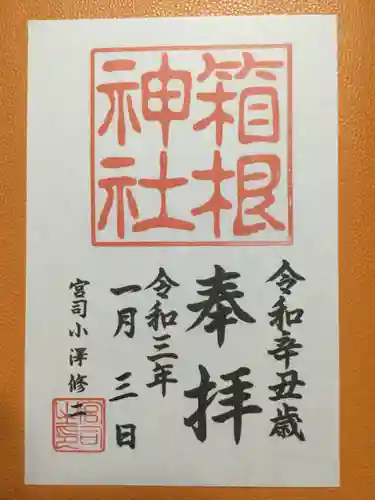 箱根
神社
令和辛丑歳
奉拝
令和三年
一月三日
宮司小澤修二
宮司之印